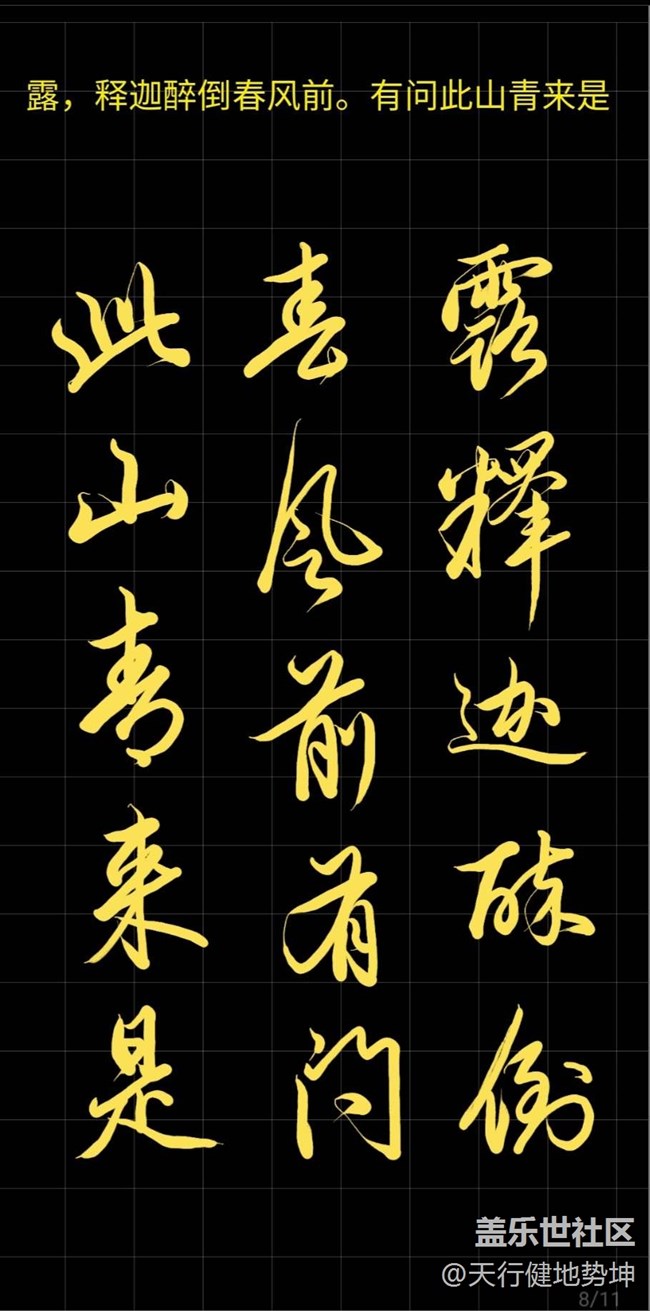 露，释迦醉倒春风前。有问此山青来是
露釋迦醉倒
春风前有问
此山青来是
盖乐世社区
@天行健地势坤
8/11